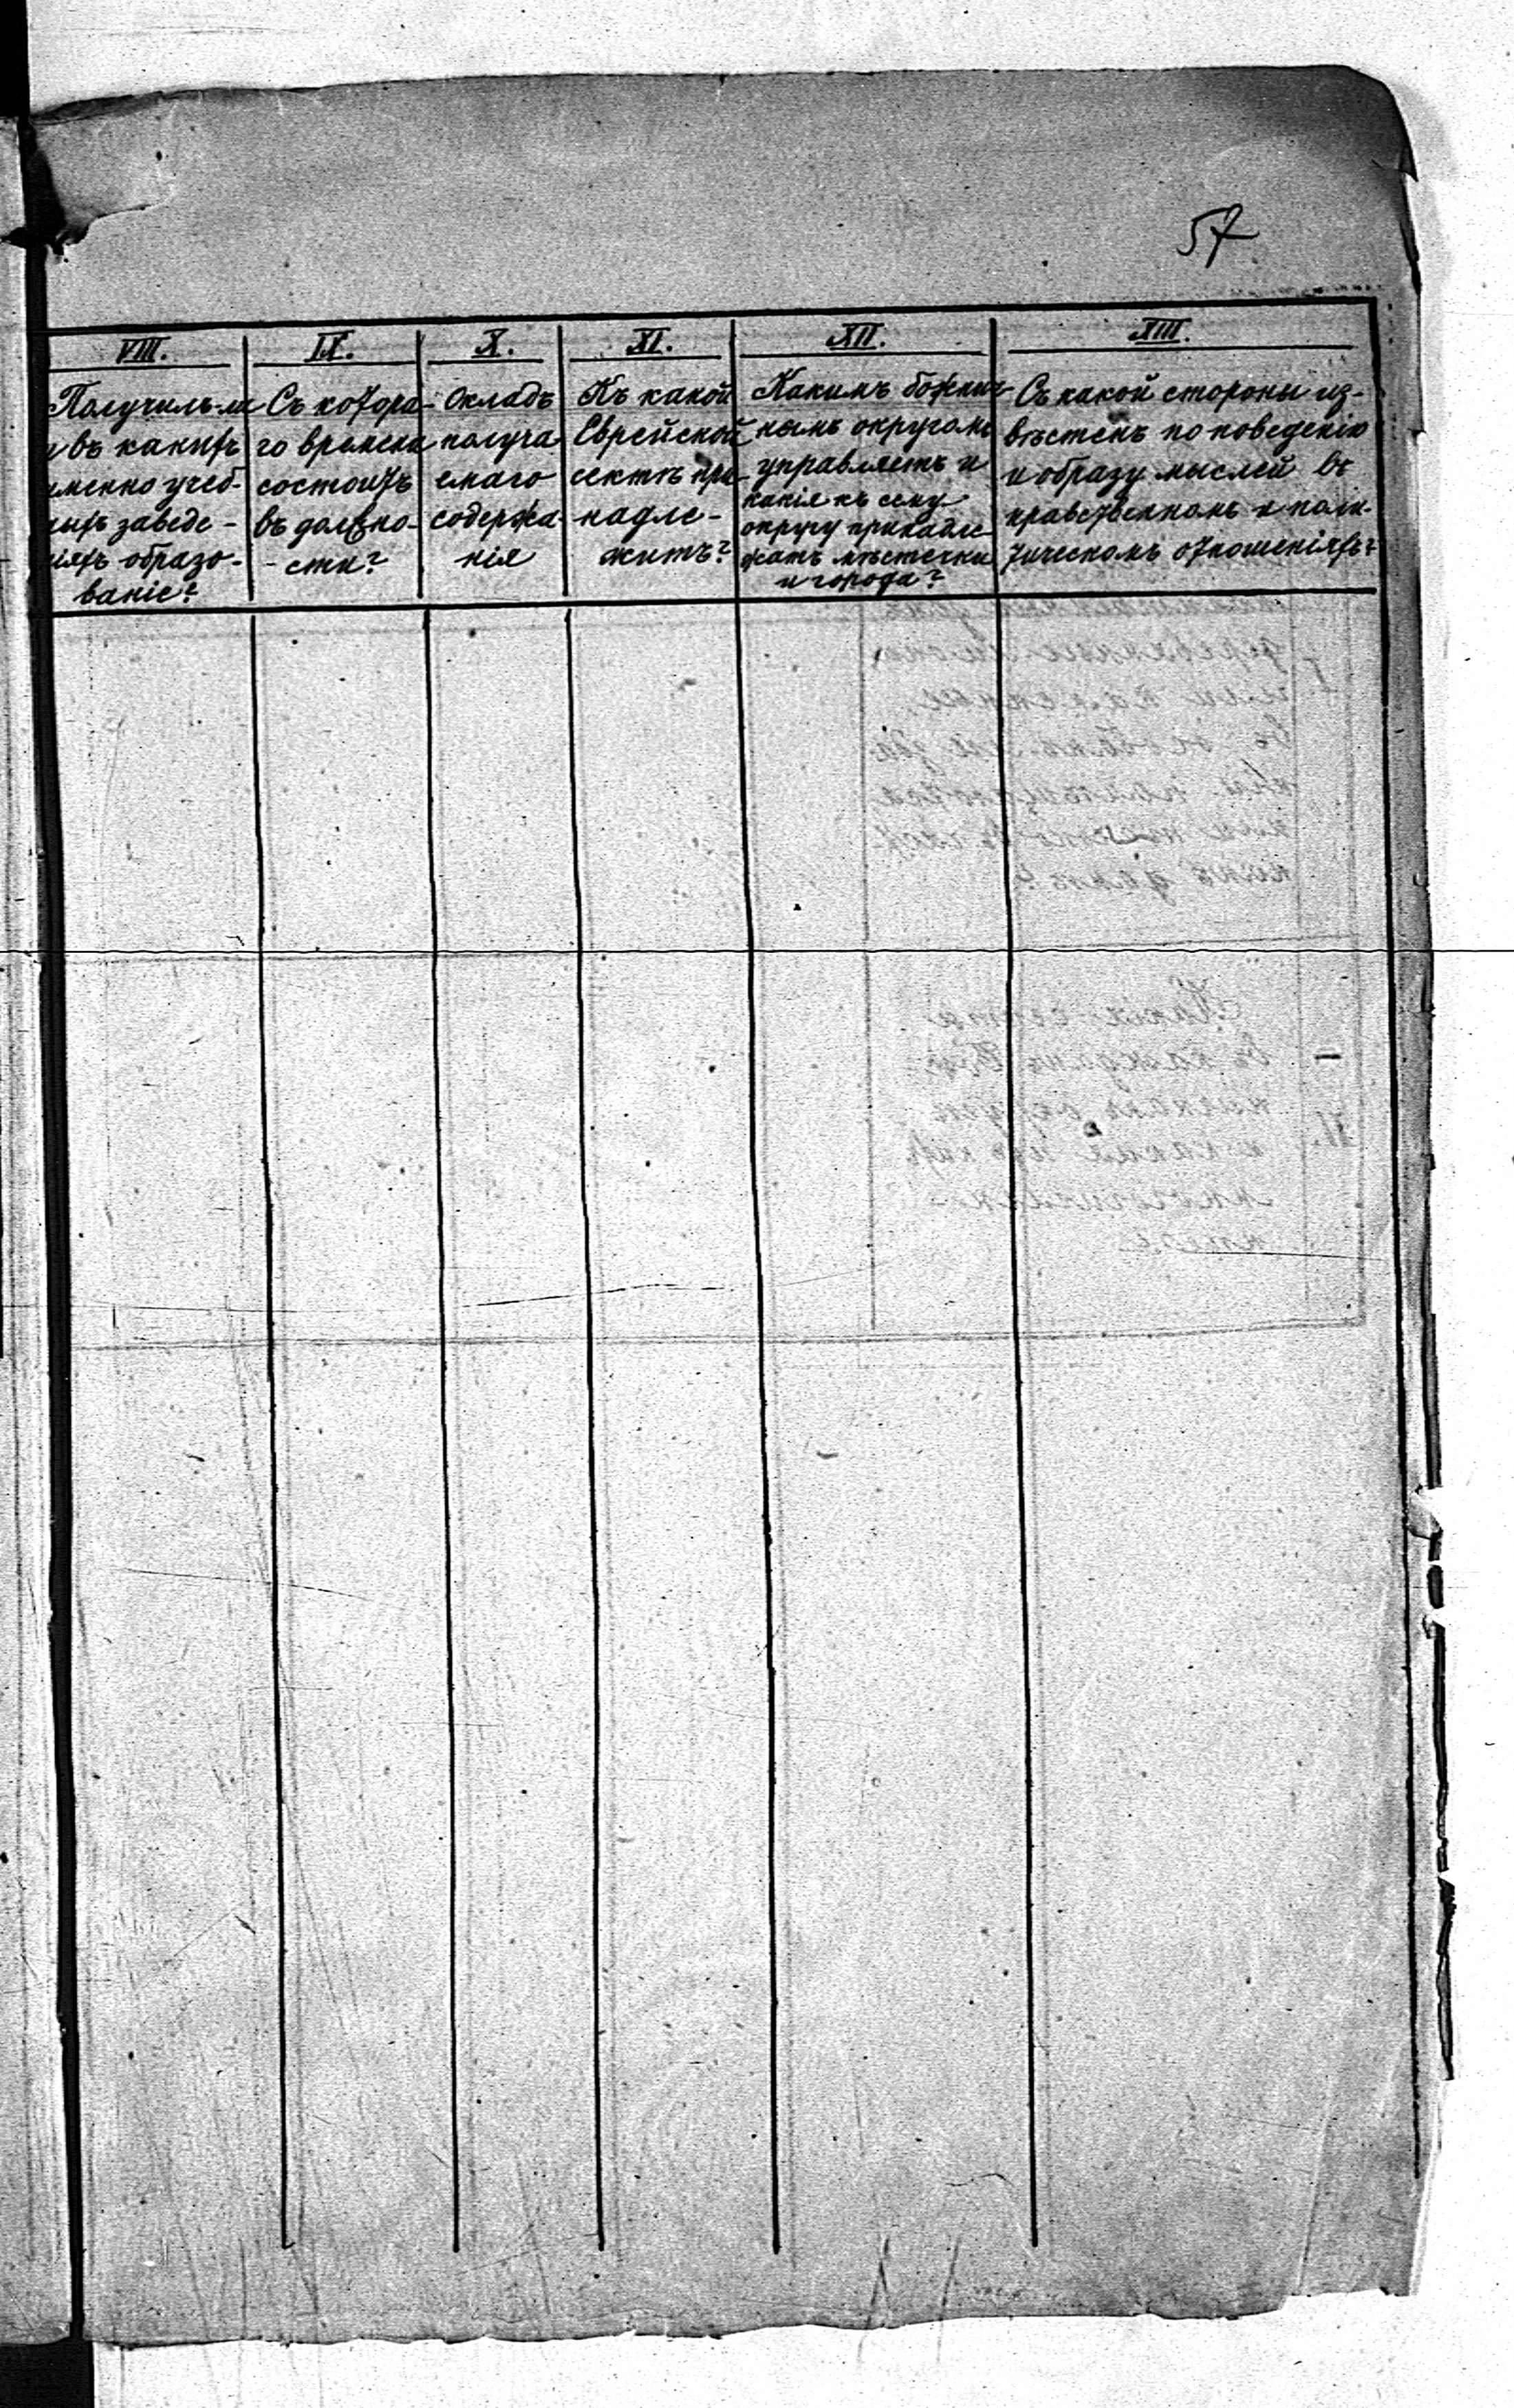 57
VIII.
Получилъ-ли
и въ какихъ
именно учеб-
ныхъ заведе-
ніяхъ образо-
ваніе?
IX.
Съ котора-
го времени
состоитъ
въ должно-
- сти?
X.
Окладъ
получа-
емаго
содержа-
нія
XI.
Къ какой
Еврейской
сектѣ при-
надле-
житъ?
XII.
Какимъ божнич-
нымъ округомъ
управляетъ и
какія къ сему
округу принадле-
жатъ мѣстечки
и города?
XIII.
Съ какой стороны из-
вѣстенъ по поведенію
и образу мыслей въ
нравственномъ и поли-
тическомъ отношеніяхъ?